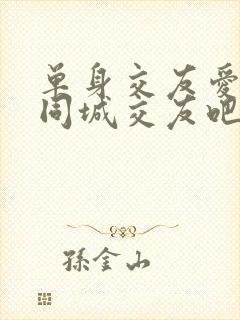 单身交友爱
同城交友吧
孫金山